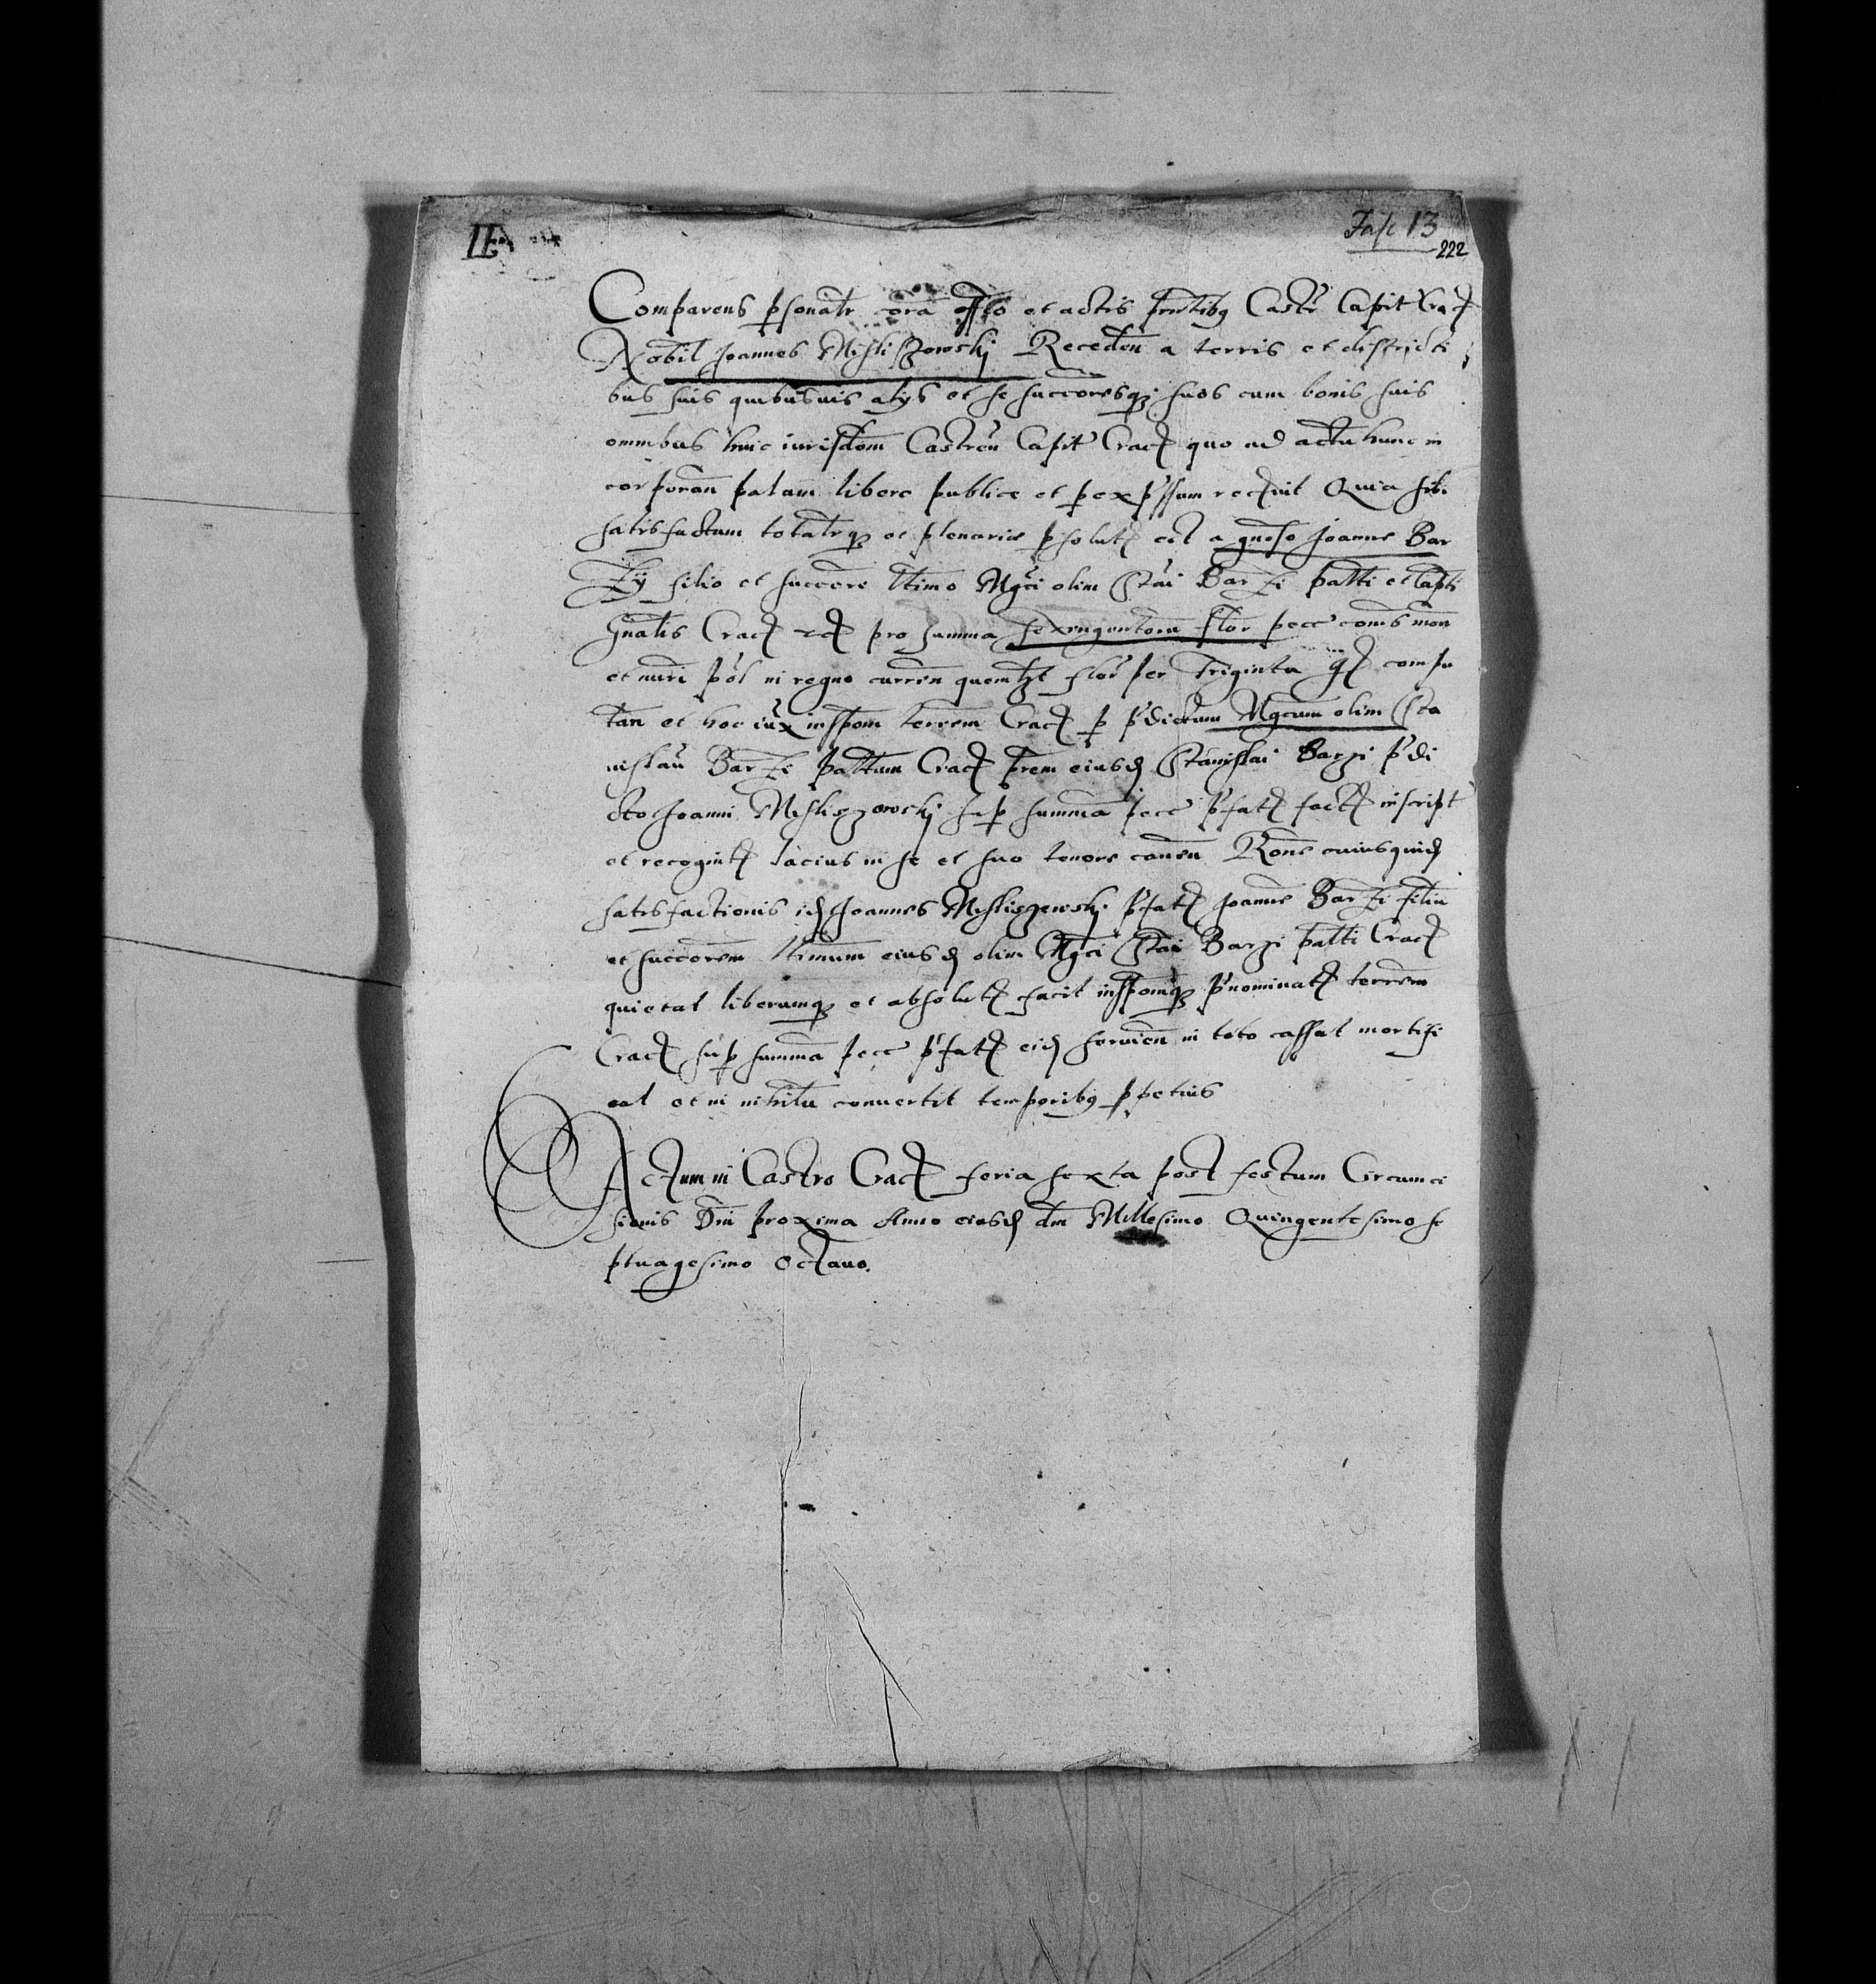 II
Fasc 13
222
Comparens psonalr cora offo et actis pntibq Castr Capit Crac
Nobil Joannes Misliszowskj Receden a terris et districti
bus suis quibusuis alijs et se succoresq suos cum bonis suis
omnibus huic iurisdom Castren Capit Crac quo ad actu hunc in
corporan palam libere publice et p expssum recuit Quia sibi
satisfactum totalrq et plenarie psolut est a gnoso Joanne Bar
zij filio et succore ltimo Mgci olim Stai Barzi palti et Capti
gnalis Crac etc pro summa sexingentoru flor pecc comis mon
et nuri pol in regno curren quemlzt flor per Triginta g compu
tan et hoc iux inspom terrem Crac p pdictum Mgcum olim Sta
nislau Barzi paltum Crac prem eiusd Stanislai Barzi pdi
cto Joanni Misliszowskj sup summa pecc pfat fact inscript
et recognit lacius in se et suo tenore canen Rone cuiusquid
satisfactionis id Joannes Misliszewskj pfat Joanne Barzi filiu
et succorem ltimum eiusd olim Mgci Stai Barzi palti Crac
quietat liberumq et absolut facit inspomq pnominat terrem
Crac sup summa pecc pfat eid seruien in toto cassat mortifi
cat et in nihilu conuertit temporibq ppetuis
Actum in Castro Crac feria sexta post festum Circumci
sionis Dni proxima Anno eiusd dni Millesimo Quingentesimo se
ptuagesimo Octauo.